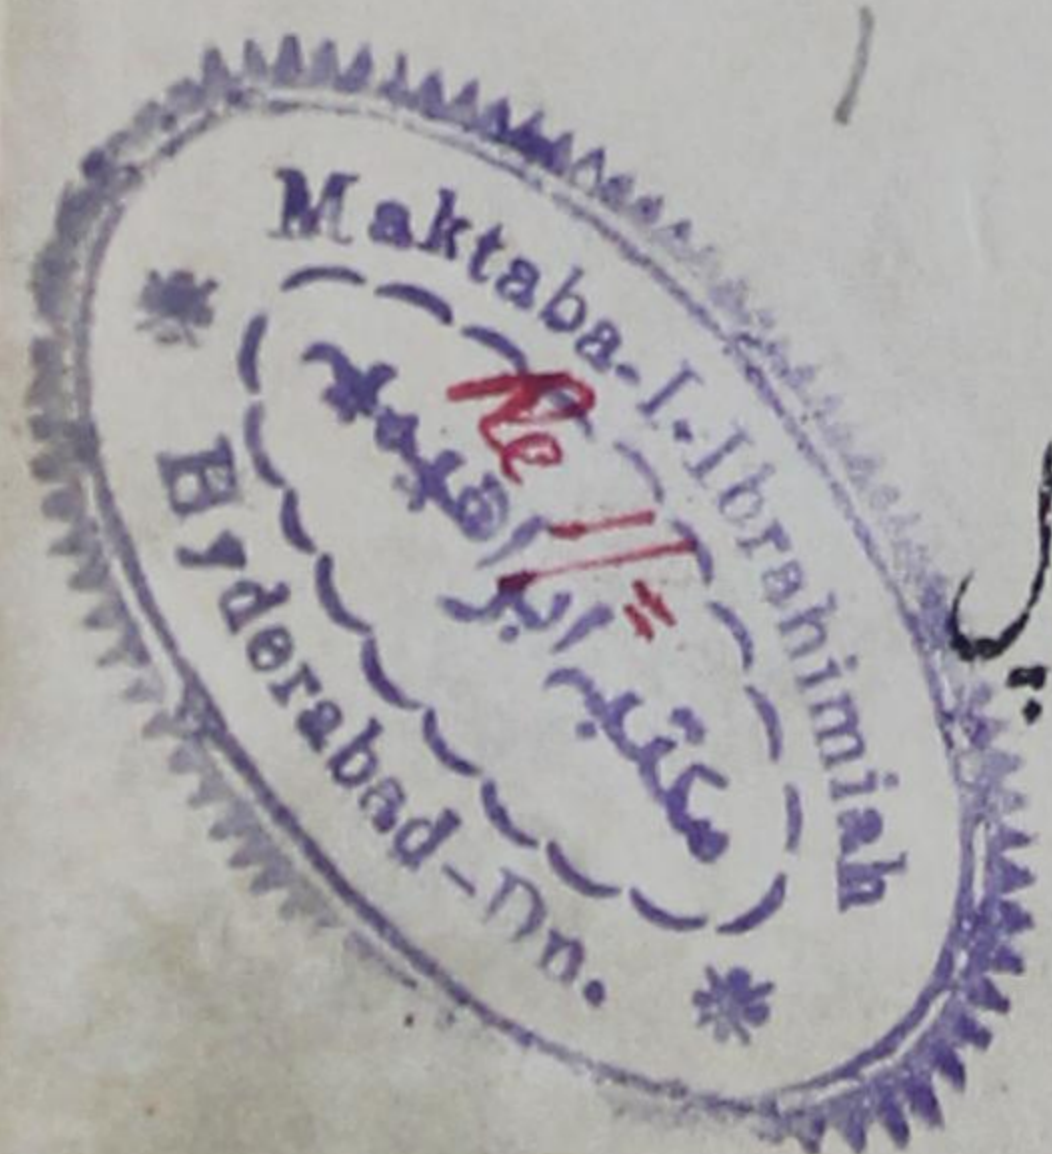 Maktaba-I-Ibrahimiah
مکتبہ
ابراہیمیہ
Re 1/-
Hyderabad-Dn.